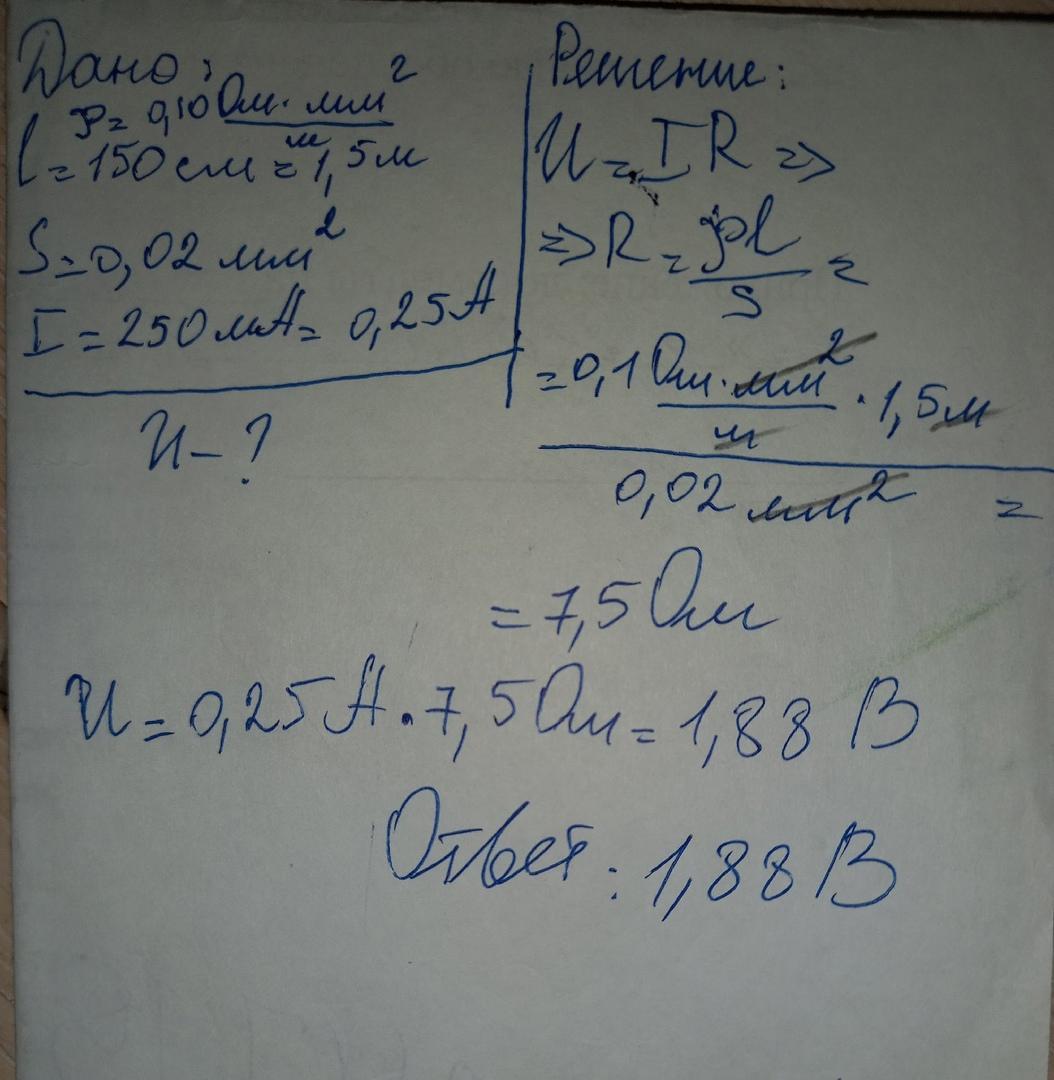 Дано:
ρ = 0,10 Ом · мм²/м
l = 150 см = 1,5 м
S = 0,02 мм²
I = 250 мА = 0,25 А
U – ?
Решение:
U = IR =>
=> R = ρl/S =
= 0,1 Ом · мм²/м · 1,5 м
0,02 мм² =
= 7,5 Ом
U = 0,25 А · 7,5 Ом = 1,88 В
Ответ: 1,88 В